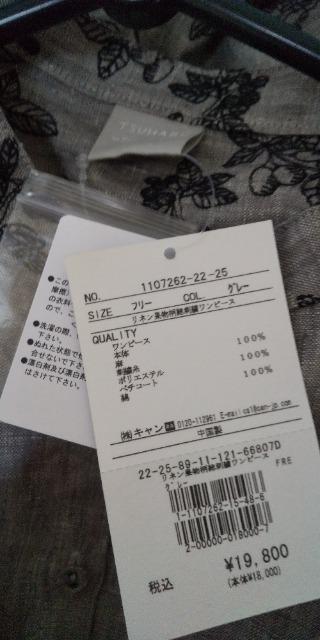 TSUHARU
●この
摩擦
の衣料
ので、こ
く
●洗濯の際、
下さい。
●ぬれた状態で
合せないで下さ
●漂白剤及び漂白
はさけて下さい。
NO. 1107262-22-25
SIZE フリー COL. グレー
リネン果物柄総刺繍ワンピース
QUALITY
ワンピース
本体
麻 100%
刺繍糸
ポリエステル 100%
ペチコート
綿 100%
㈱キャン 0120-112961 E-mail cs1@can-jp.com
中国製
22-25-89-11-121-66807D
リネン果物柄総刺繍ワンピース
グレー FRE
1-1107262-15-48-6
2-00000-018000-7
税込 ¥19,800
(本体¥18,000)